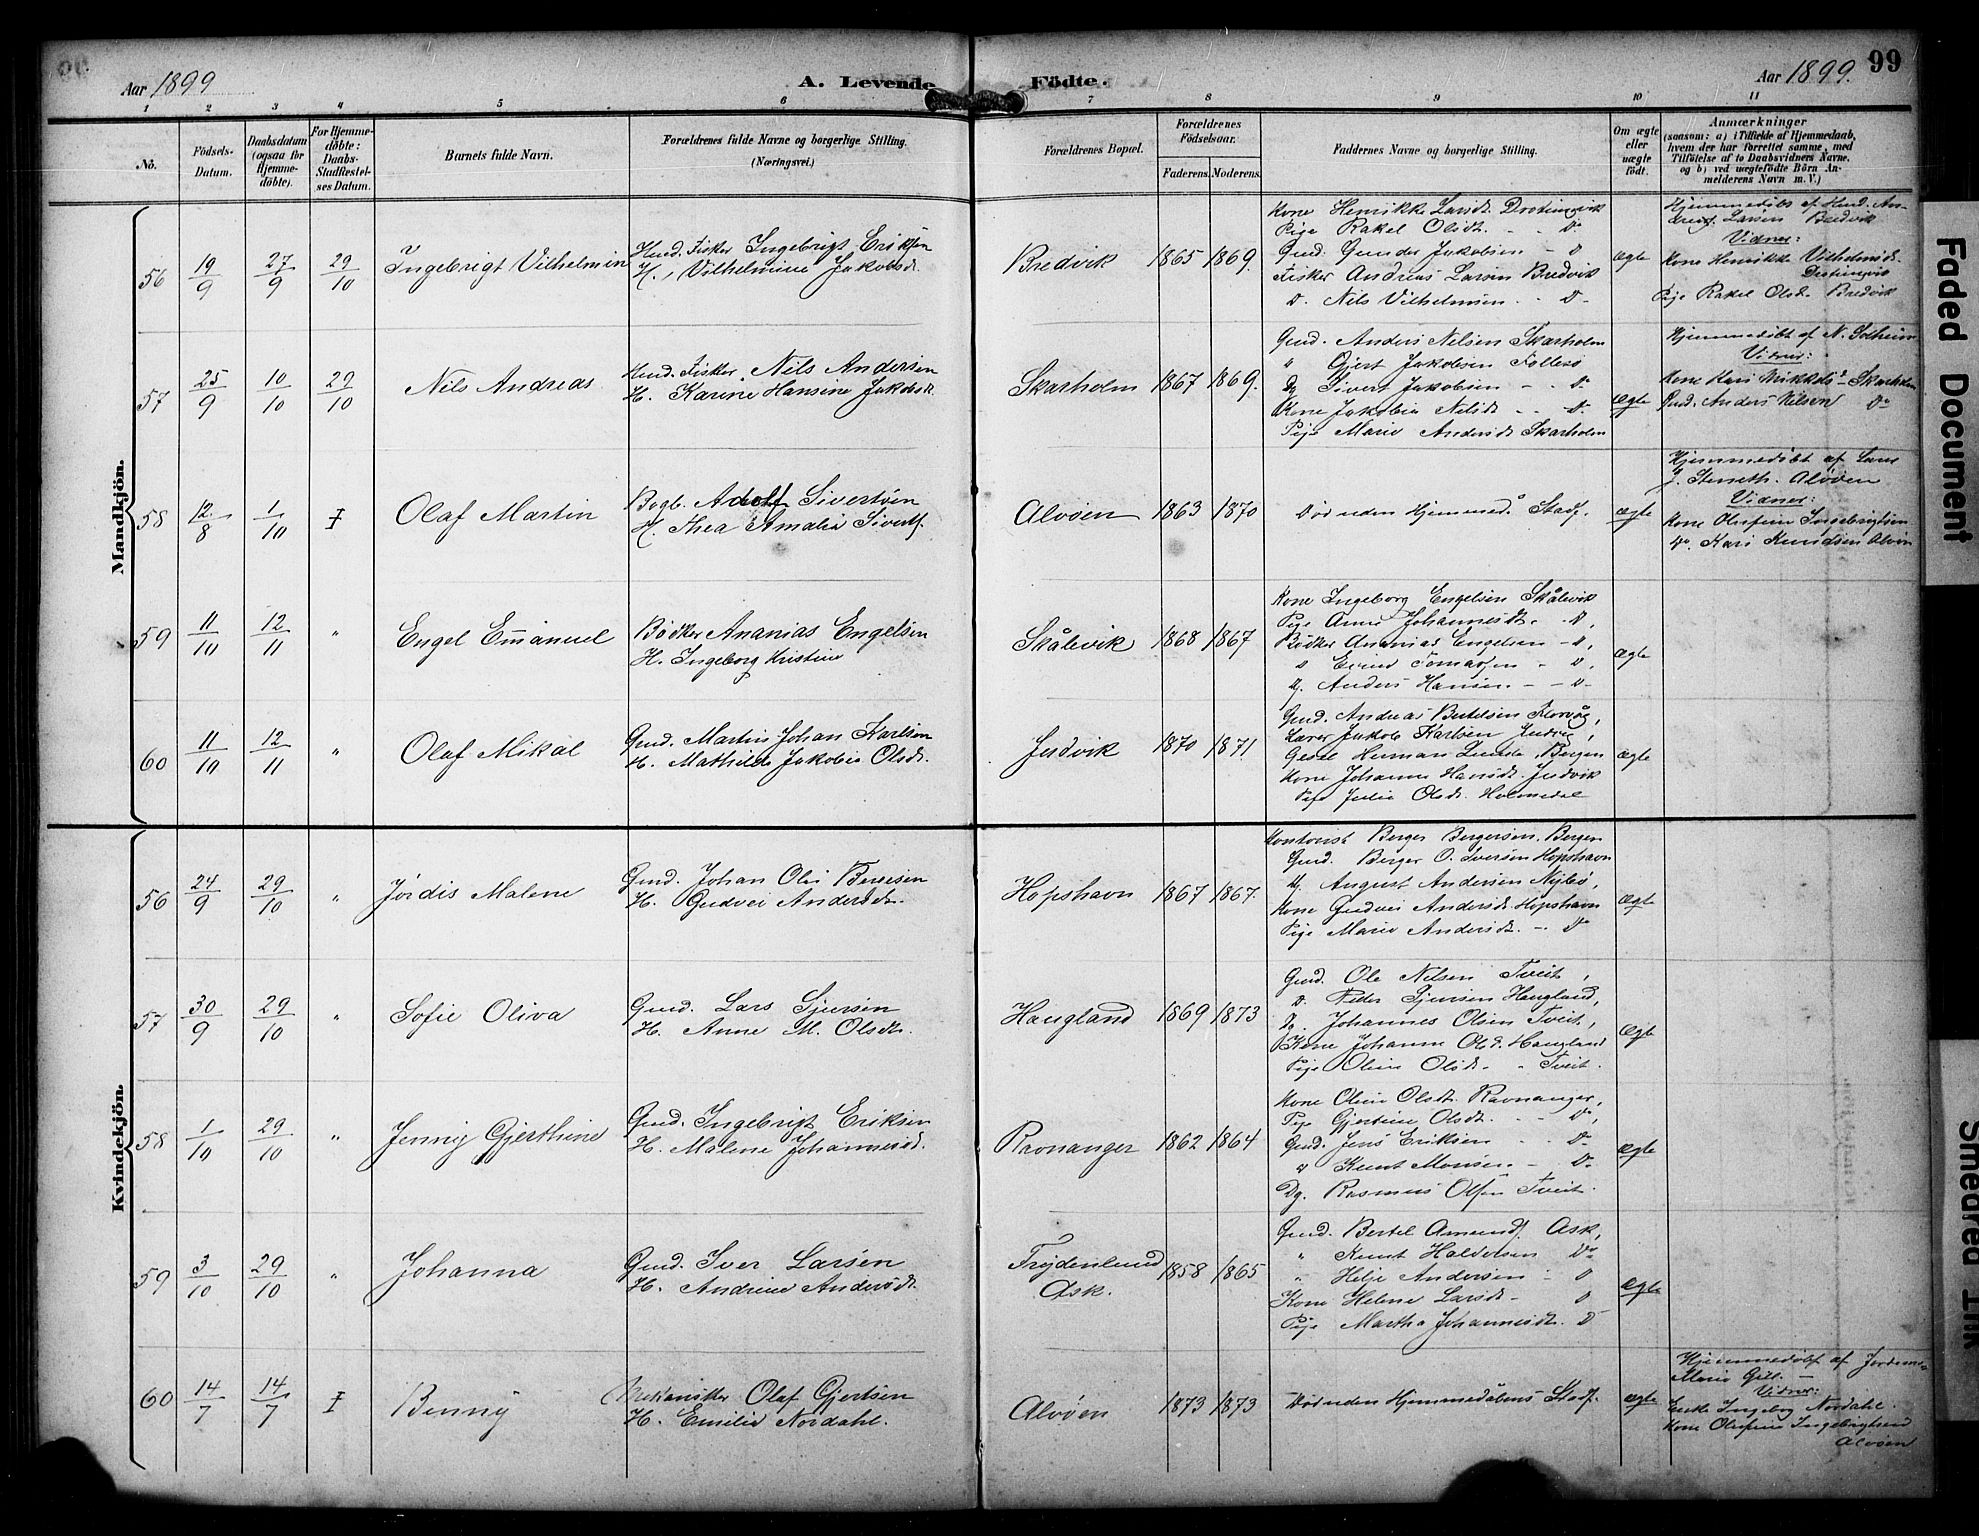 99
Aar 1899 A. Levende Födte. Aar 1899.
1 2 3 4 5 6 7 8 9 10 11
No.
Födsels-Datum.
Daabsdatum (ogsaa for Hjemme-döbte).
For Hjemme-döbte: Daabs-Stadfæstel-ses Datum.
Barnets fulde Navn.
Forældrenes fulde Navne og borgerlige Stilling. (Næringsvei.)
Forældrenes Bopæl.
Forældrenes Födselsaar.
Faderens. Moderens.
Faddernes Navne og borgerlige Stilling.
Om ægte eller uægte födt.
Anmærkninger
(saasom: a) i Tilfælde af Hjemmedaab,
hvem der har forrettet samme, med
Tilföielse af to Daabsvidners Navne.
og b) ved uægtefödte Börn An-
melderens Navn m. V.)
Mandkjön.
56 19/9 27/9 29/10 Ingebrigt Vilhelmin
Husd. Fisker Ingebrigt Eriksen
H. Vilhelmine Jakobsd.
Bredvik 1865 1869.
Kone Henrikke Larsd.
Pige Rakel Olsdt. - - Do
Gmd. Gunder Jakobsen - D
Fisker Andreas Larsen Bredvik
D. Nils Vilhelmsen - - D-
ægte
Hjemmedöbt af Husd. An-
dreas Larsen Bredvik
Vidner:
Kone Henrikke Vilhelmsd.
Pige Rakel Olsd. Bredvik
57 25/9 10/10 29/10 Nils Andreas
Husd. Fisker Nils Andersen
H. Karine Hansine Jakobsd.
Skarholm 1867 1869.
Gmd. Anders Nilsen Skarholm
" Gjert Jakobsen Follesö
Dg Sivert Jakobsen - - Do
Kone Jakobia Nilsd. - - D-
Pige Marie Andersd. Skarholm
ægte
Hjemmedöbt af N. Solheim
Vidner:
Kone Kari Mikkelsd. Skarholm
Gmd. Anders Nilsen Do
58 12/8 1/10 I Olaf Martin
Bogb. Adolf Sivertsen
H. Thea Amalia Sivertsen
Alvøen 1863 1870
Död uden Hjemmed. Stadf.
ægte
Hjemmedöbt af
Alvøen
Vidner:
Kone Olufine Ingebrigtsen
Do. Kari Knudsen Alvøen
59 11/10 12/11 " Engel Emanuel
Bödker Ananias Engelsen
H. Ingeborg Kristine
Skålevik 1868 1867
Kone Ingeborg Engelsen Skålevik
Pige Anna Johannesdt. - D,
Bödker Ananias Engelsen - D,
Tomassen - D,
Dg. Anders Hansen - - D-
ægte
60 11/10 12/11 " Olaf Mikal
Gmd. Martin Johan Karlsen
H. Mathilde Jakobia Olsdt.
Juvik 1870 1871
Gmd. Andreas Bertelsen Florvåg,
Lærer Jakob Karlsen
Herman Bergen
Kone Johanne Hansd.
Pige Julie Olsd. Holmedal
ægte
Kvindekjön.
56 24/9 29/10 " Jördis Malene
Gmd. Johan Olai Bergesen
H. Gudvei Andersdr.
Hopshavn 1867 1867.
Kontorist Berger Bergersen, Bergen
Gmd. Berger O. Iversen Hopshavn
Dg. August Andersen
Kone Gudvei Andersd. Hopshavn
Pige Marie Andersdt. - - Do
ægte
57 30/9 29/10 " Sofie Oliva
Gmd. Lars Sjursen
H. Anne M. Olsdt.
Haugland 1869 1873
Gmd. Ole Nilsen Tveit,
D. Peder Sjursen Haugland,
Dg. Johannes Olsen Tveit,
Kone Johanne Olsd. Haugland
Pige Oline Olsdt. - " Tveit.
ægte
58 1/10 29/10 " Jenny Gjerthine
Gmd. Ingebrigt Eriksen
H. Malene Johannesd.
Ravnanger 1862 1864
Kone Oline Olsdt. Ravnanger,
Pige Gjertine Olsdt. - Do,
Gmd. Jens Eriksen - - Do
" Knut Monsen - Do
Dg. Rasmus Olsen Tveit.
ægte
59 3/10 29/10 " Johanna
Gmd. Iver Larsen
H. Andrine Andersdt.
Frydenlund Ask. 1858 1865
Gmd. Bertel Amunds. Ask,
" Knut Haldorsen Do
" Helje Andersen - D
Kone Helene Larsdt - D
Pige Martha Johannesdt. D
ægte
60 14/7 14/7 I Benny
Mekaniker Olaf Gjertsen
H. Emilie Nordahl.
Alvøen 1873 1873
Död uden Hjemmedåbens Stadf.
ægte
Hjemmedöbt af Jordemo-
Marie Gill.
Vidner:
Enke Ingeborg Nordahl.
Kone Olufine Ingebrigtsen
Alvøen
Faded Document
Smeared Ink